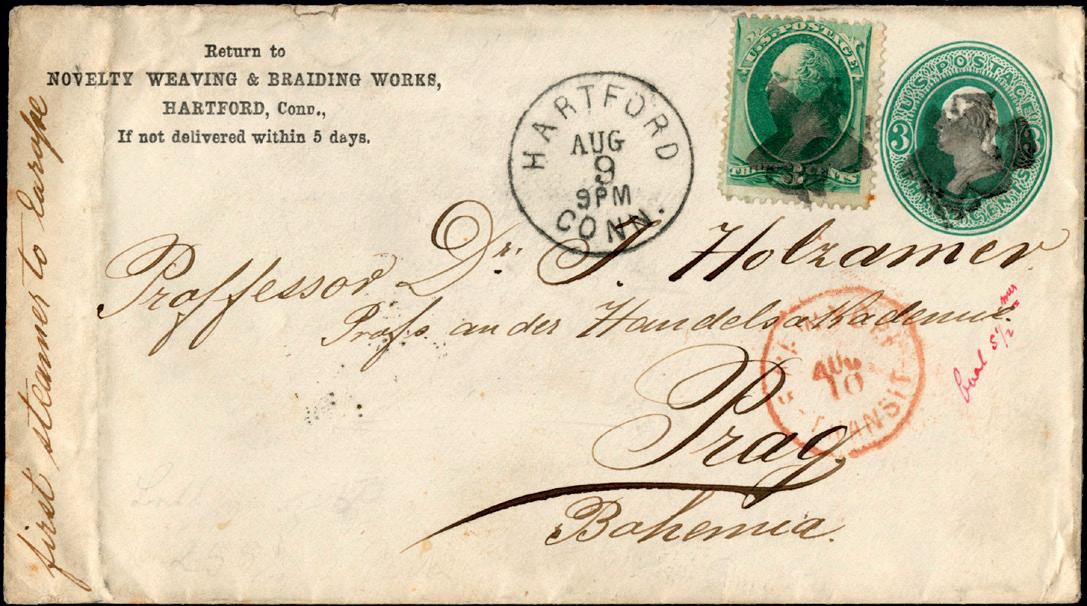 Return to
NOVELTY WEAVING & BRAIDING WORKS,
HARTFORD, Conn.,
If not delivered within 5 days.
HARTFORD
AUG
9
9PM
CONN.
U.S. POSTAGE
THREE CENTS
3
U.S. POSTAGE
3
THREE CENTS
Proffessor Dr. F. Holzamer
Profs. an der Handelsakademie
Prag
Bohemia.
AUG
10
TRANSIT
5 1/2
first steamer to Europe